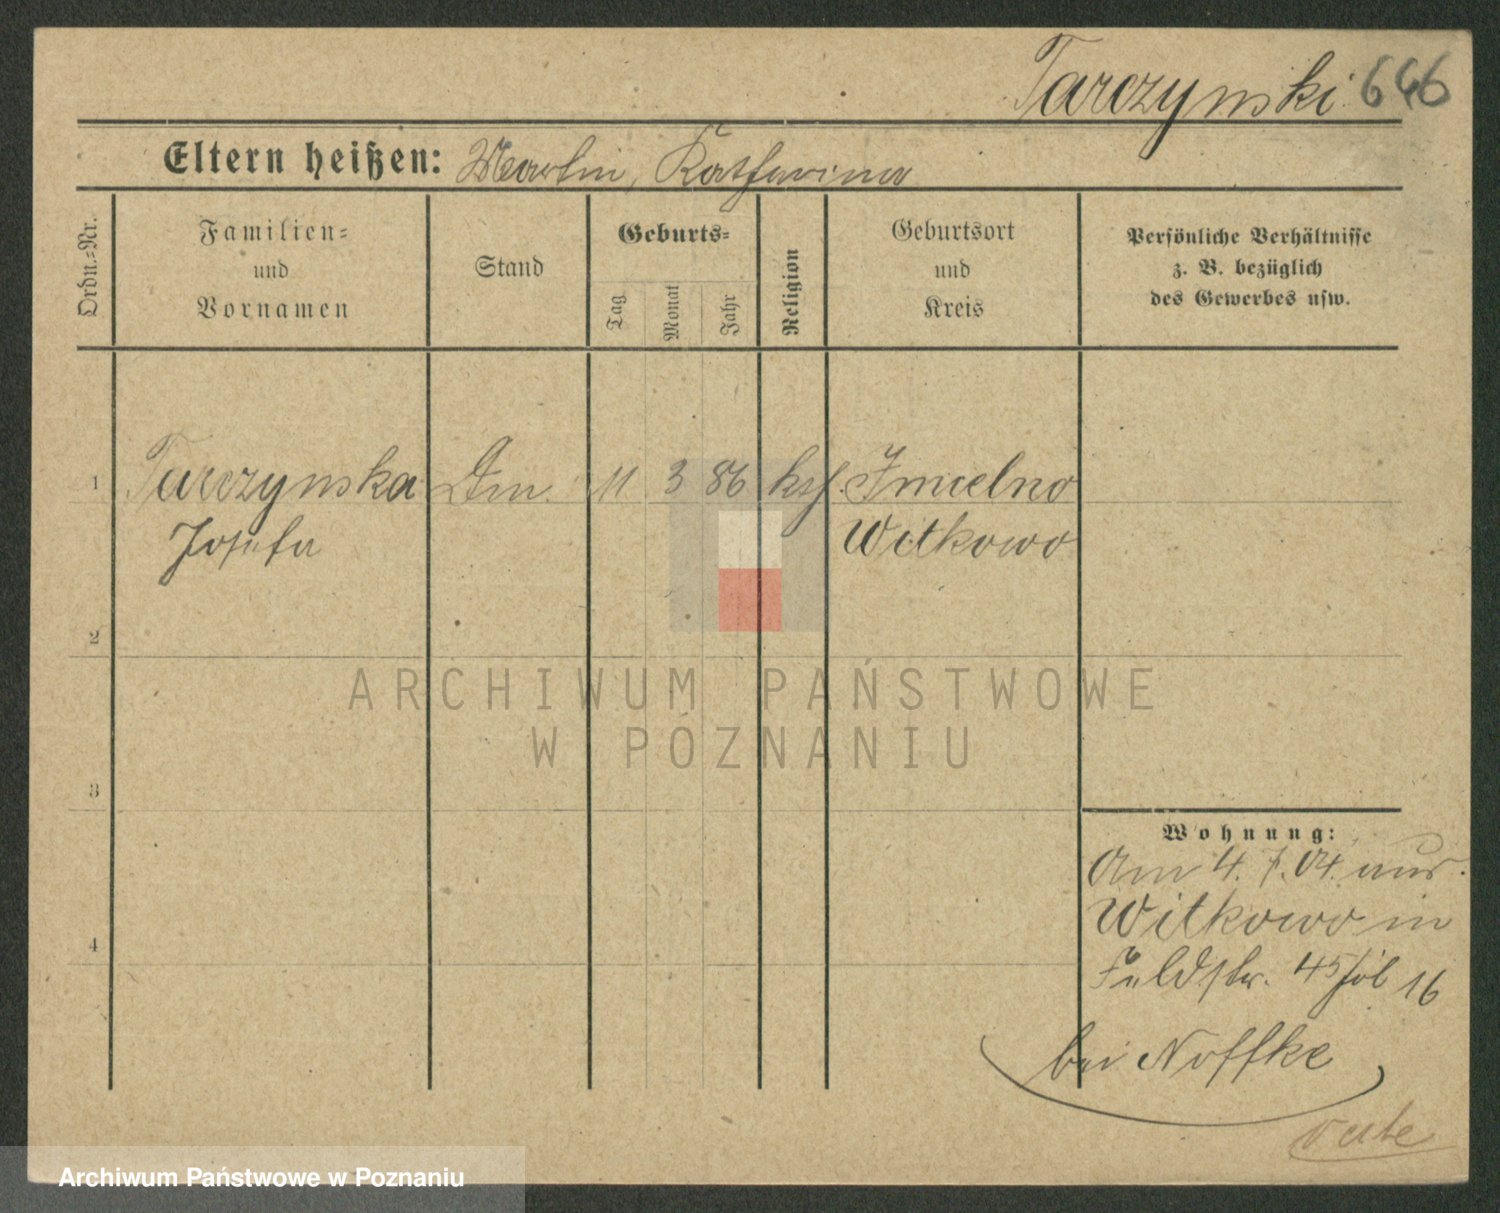 Tarczynski 646
Eltern heißen: Martin, Katharina
Ordn.-Nr.
Familien-
und
Vornamen
Stand
Geburts-
Tag
Monat
Jahr
Religion
Geburtsort
und
Kreis
Persönliche Verhältnisse
z. B. bezüglich
des Gewerbes usw.
1 Tarczynska 11 3 86 kth. Imielno
Josefa Witkowo
2
ARCHIWUM PAŃSTWOWE
W POZNANIU
3
Wohnung:
Am 4. 04. aus
Witkowo in
4
Feldstr. 45 16
bei Noffke
Archiwum Państwowe w Poznaniu